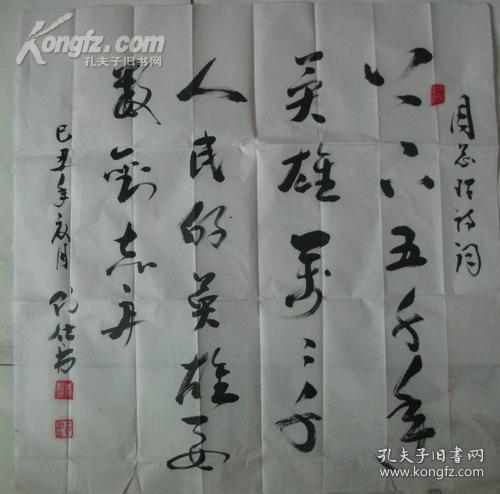 Kongfz.com
孔夫子旧书网
周总理诗词
上下五千年
英雄萬〻千
人民的英雄要
数劉志丹
己丑年夏月
孔夫子旧书网
www.kongfz.com